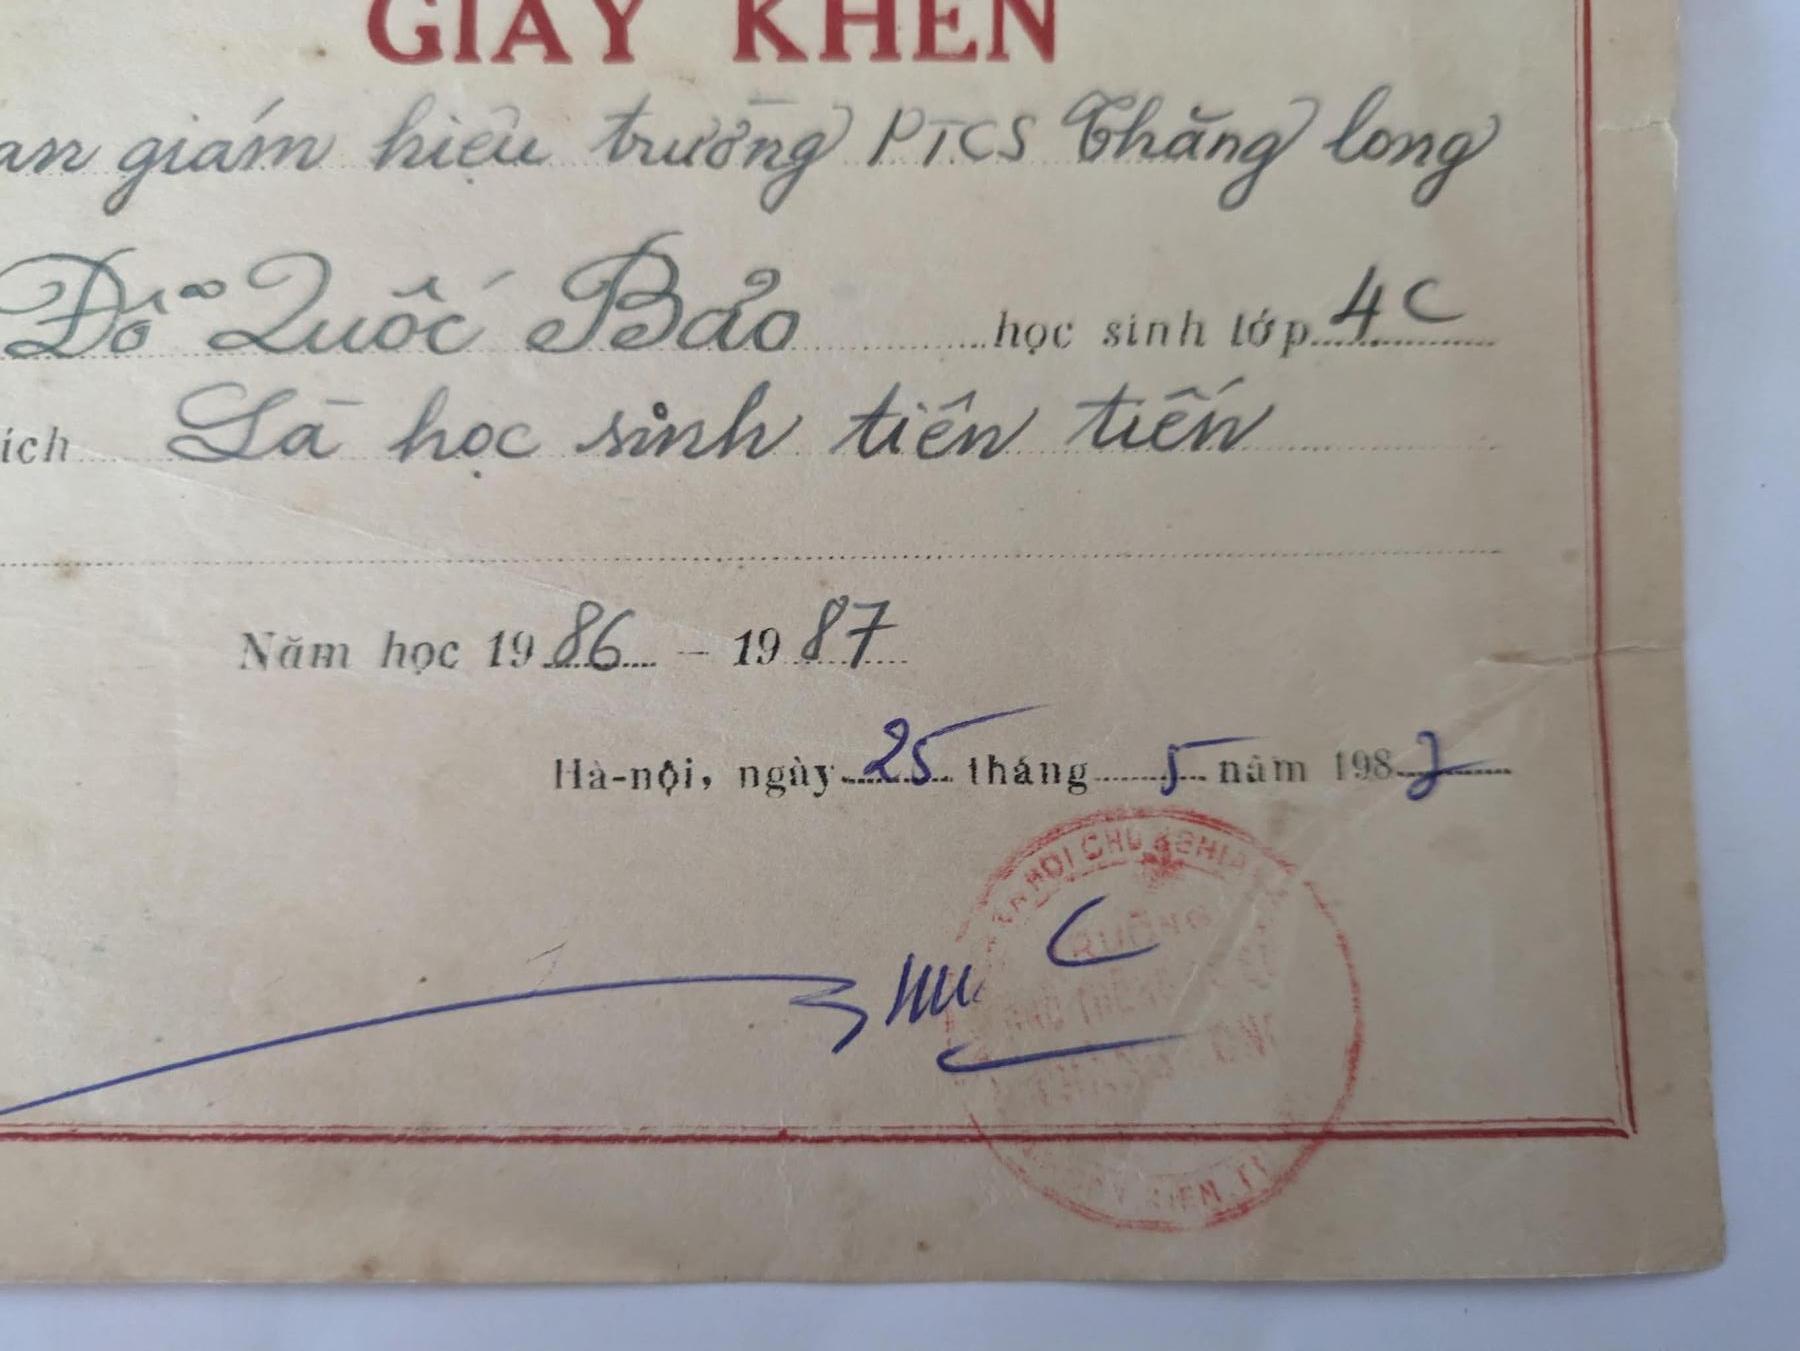 GIẤY KHEN
an giám hiệu trường PTCS Thăng long
Đỗ Quốc Bảo học sinh lớp 4C
ích Là học sinh tiên tiến
Năm học 1986 - 1987
Hà-nội, ngày 25 tháng 5 năm 1987
HỘI CHỦ NGHĨA
TRƯỜNG